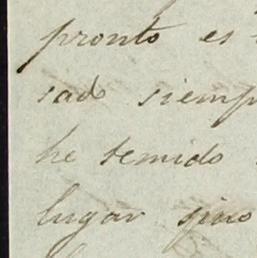 pronto es
sado siemp
he temido
lugar sino